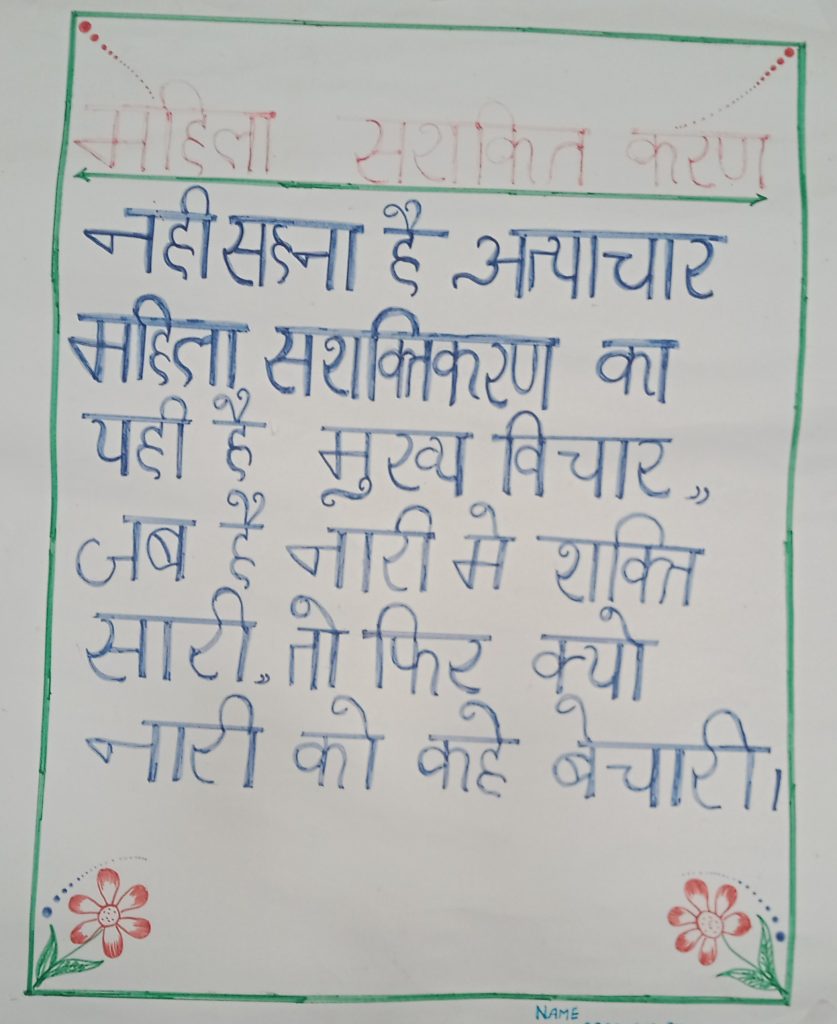 महिला सशकित करण
नही सहना है अत्याचार
महिला सशक्तिकरण का
यही है मुख्य विचार,,
जब है नारी मे शक्ति
सारी,, तो फिर क्यो
नारी को कहे बेचारी।
NAME